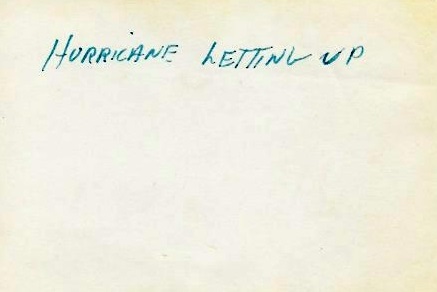 HURRICANE LETTING UP